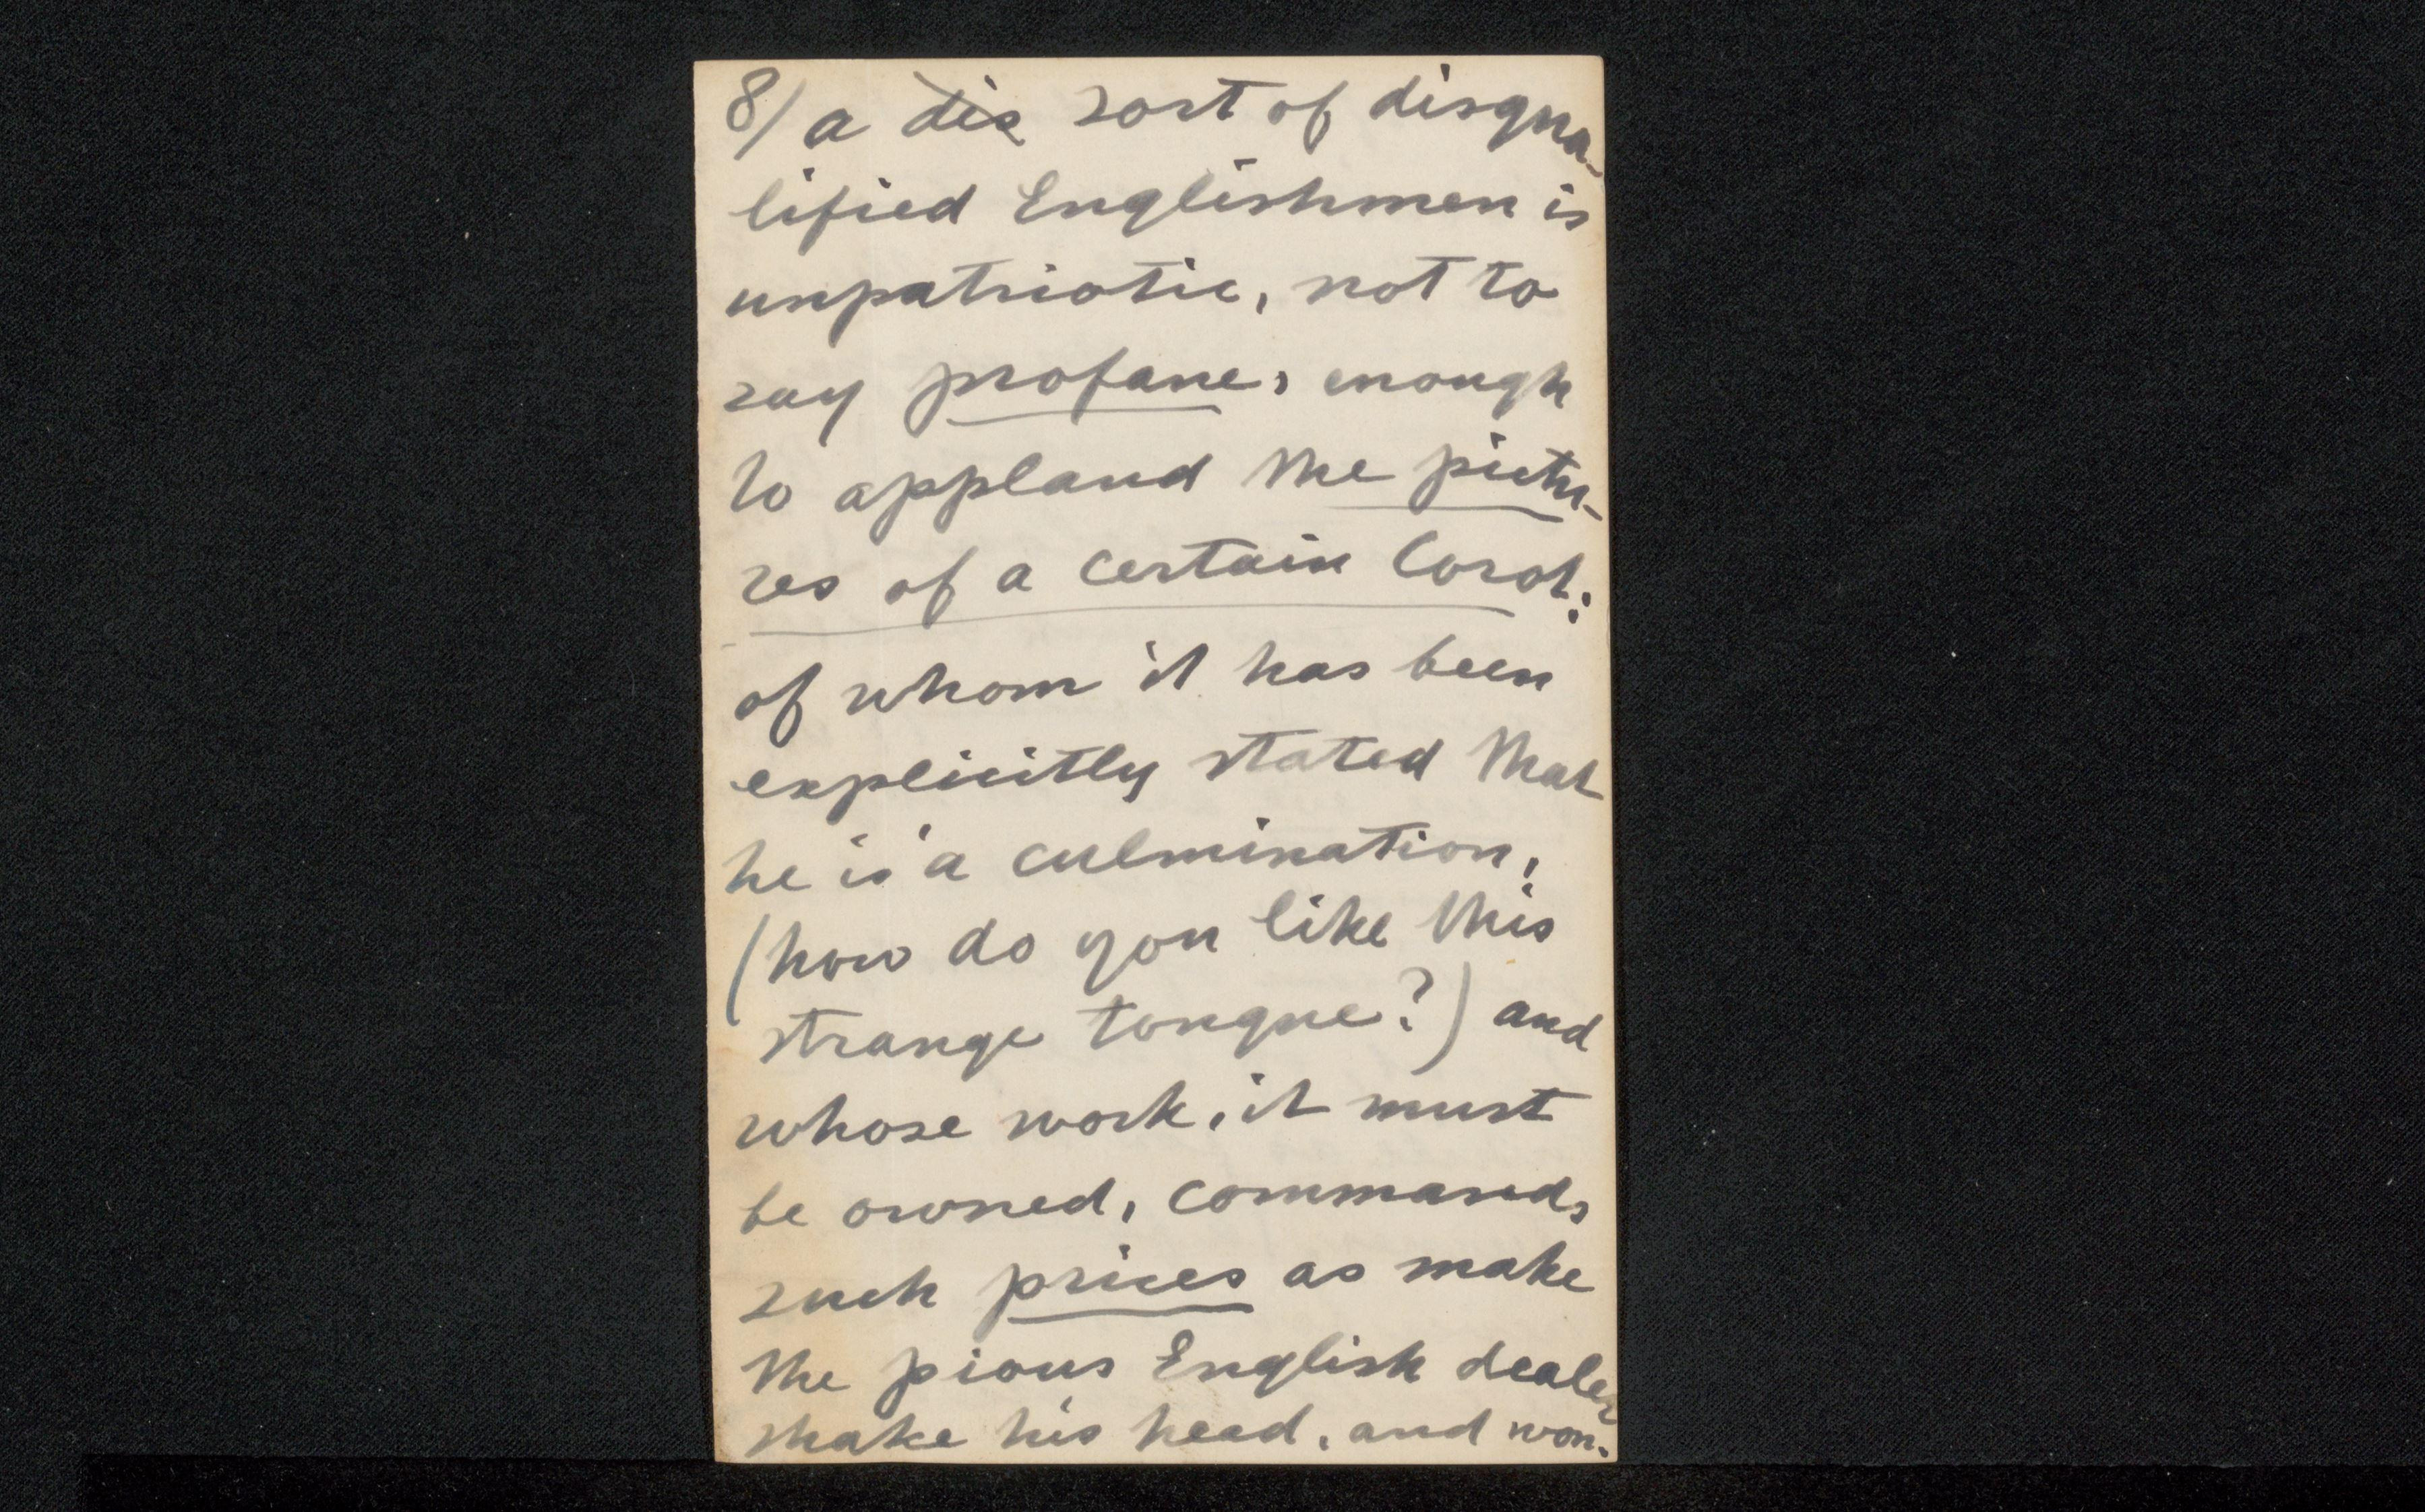 8/ a dis sort of disqua-
lified Englishmen is
unpatriotic, not to
say profane, enough
to applaud the pictu-
res of a certain Corot:
of whom it has been
explicitly stated that
he is a culmination,
(how do you like this
strange tongue?) and
whose work, it must
be owned, commands
such prices as make
the pious English dealer
shake his head, and won-